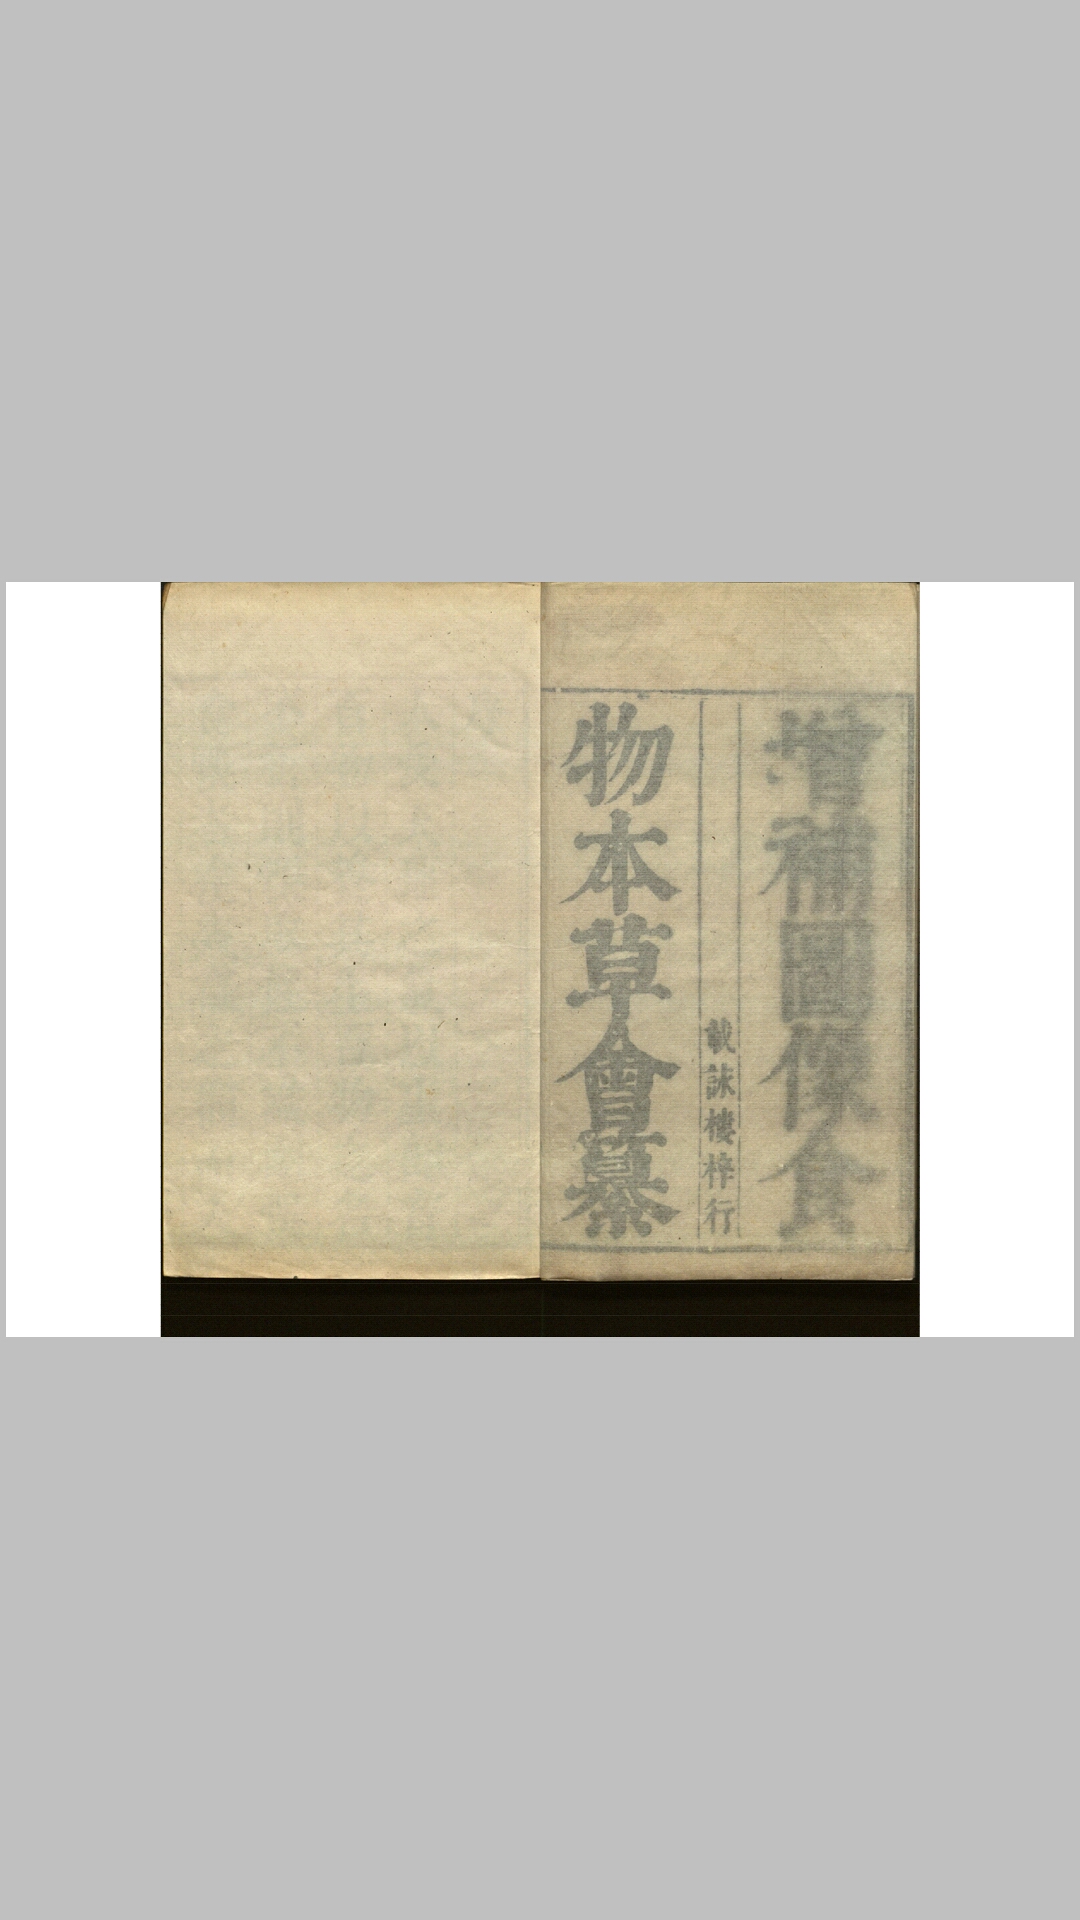 增補圖像食
載詠樓梓行
物本草會纂